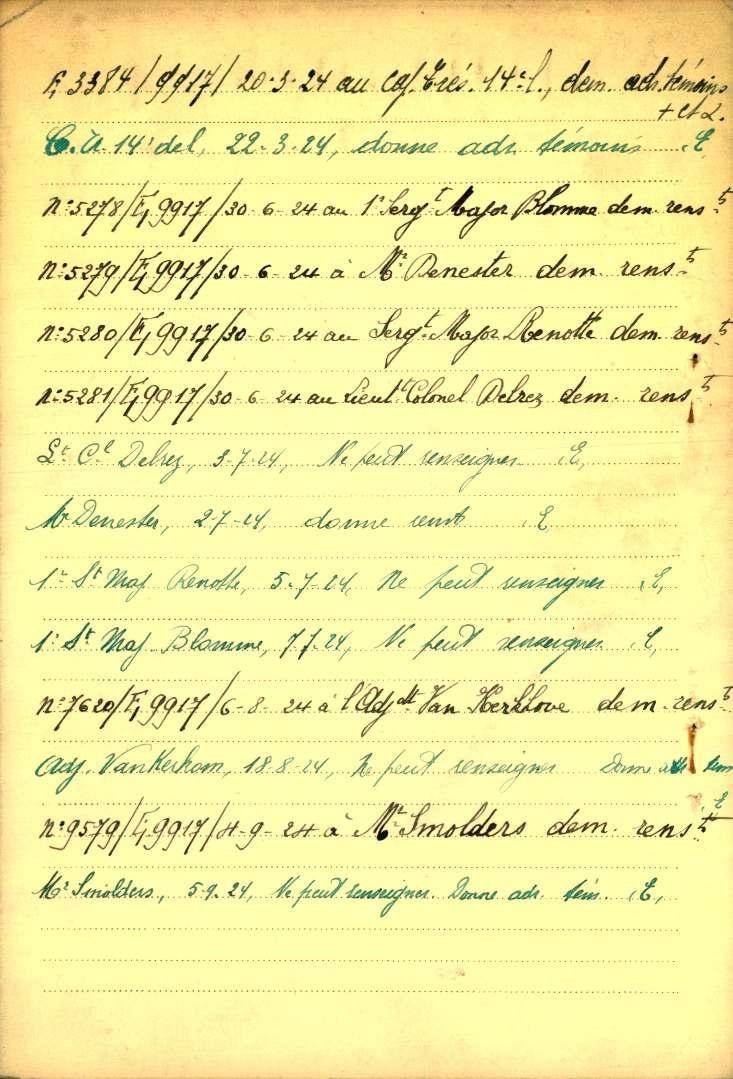 3384/9917/20-3-24 au Trés. 14e l., dem. adr. témoins
+ et 2.
C.A. 14e del, 22-3-24, donne adr. témoins E
n°5278/E,9917/30-6-24 au 1r Sergt Major Blomme dem. renst
n°5279/E,9917/30-6-24 à Mr Denester dem. renst
n°5280/E,9917/30-6-24 au Sergt Major Renotte dem. renst
n°5281/E,9917/30-6-24 au Lieutt Colonel Delrez dem. renst
Lt Cl Delrez, 3-7-24, Ne peut renseigner E,
Mr Denester, 2-7-24, donne renst E
1r St Maj Renotte, 5-7-24, Ne peut renseigner E,
1r St Maj Blomme, 7-7-24, Ne peut renseigner E,
n°7620/E,9917/6-8-24 à l'Adjdtt Van dem. renst
Adj. Van Kerkom, 18-8-24, Ne peut renseigner Donne adr tem
E
n°9579/E,9917/4-9-24 à Mr Smolders dem. renst
Mr Smolders, 5-9-24, Ne peut renseigner. Donne adr. tém. E,